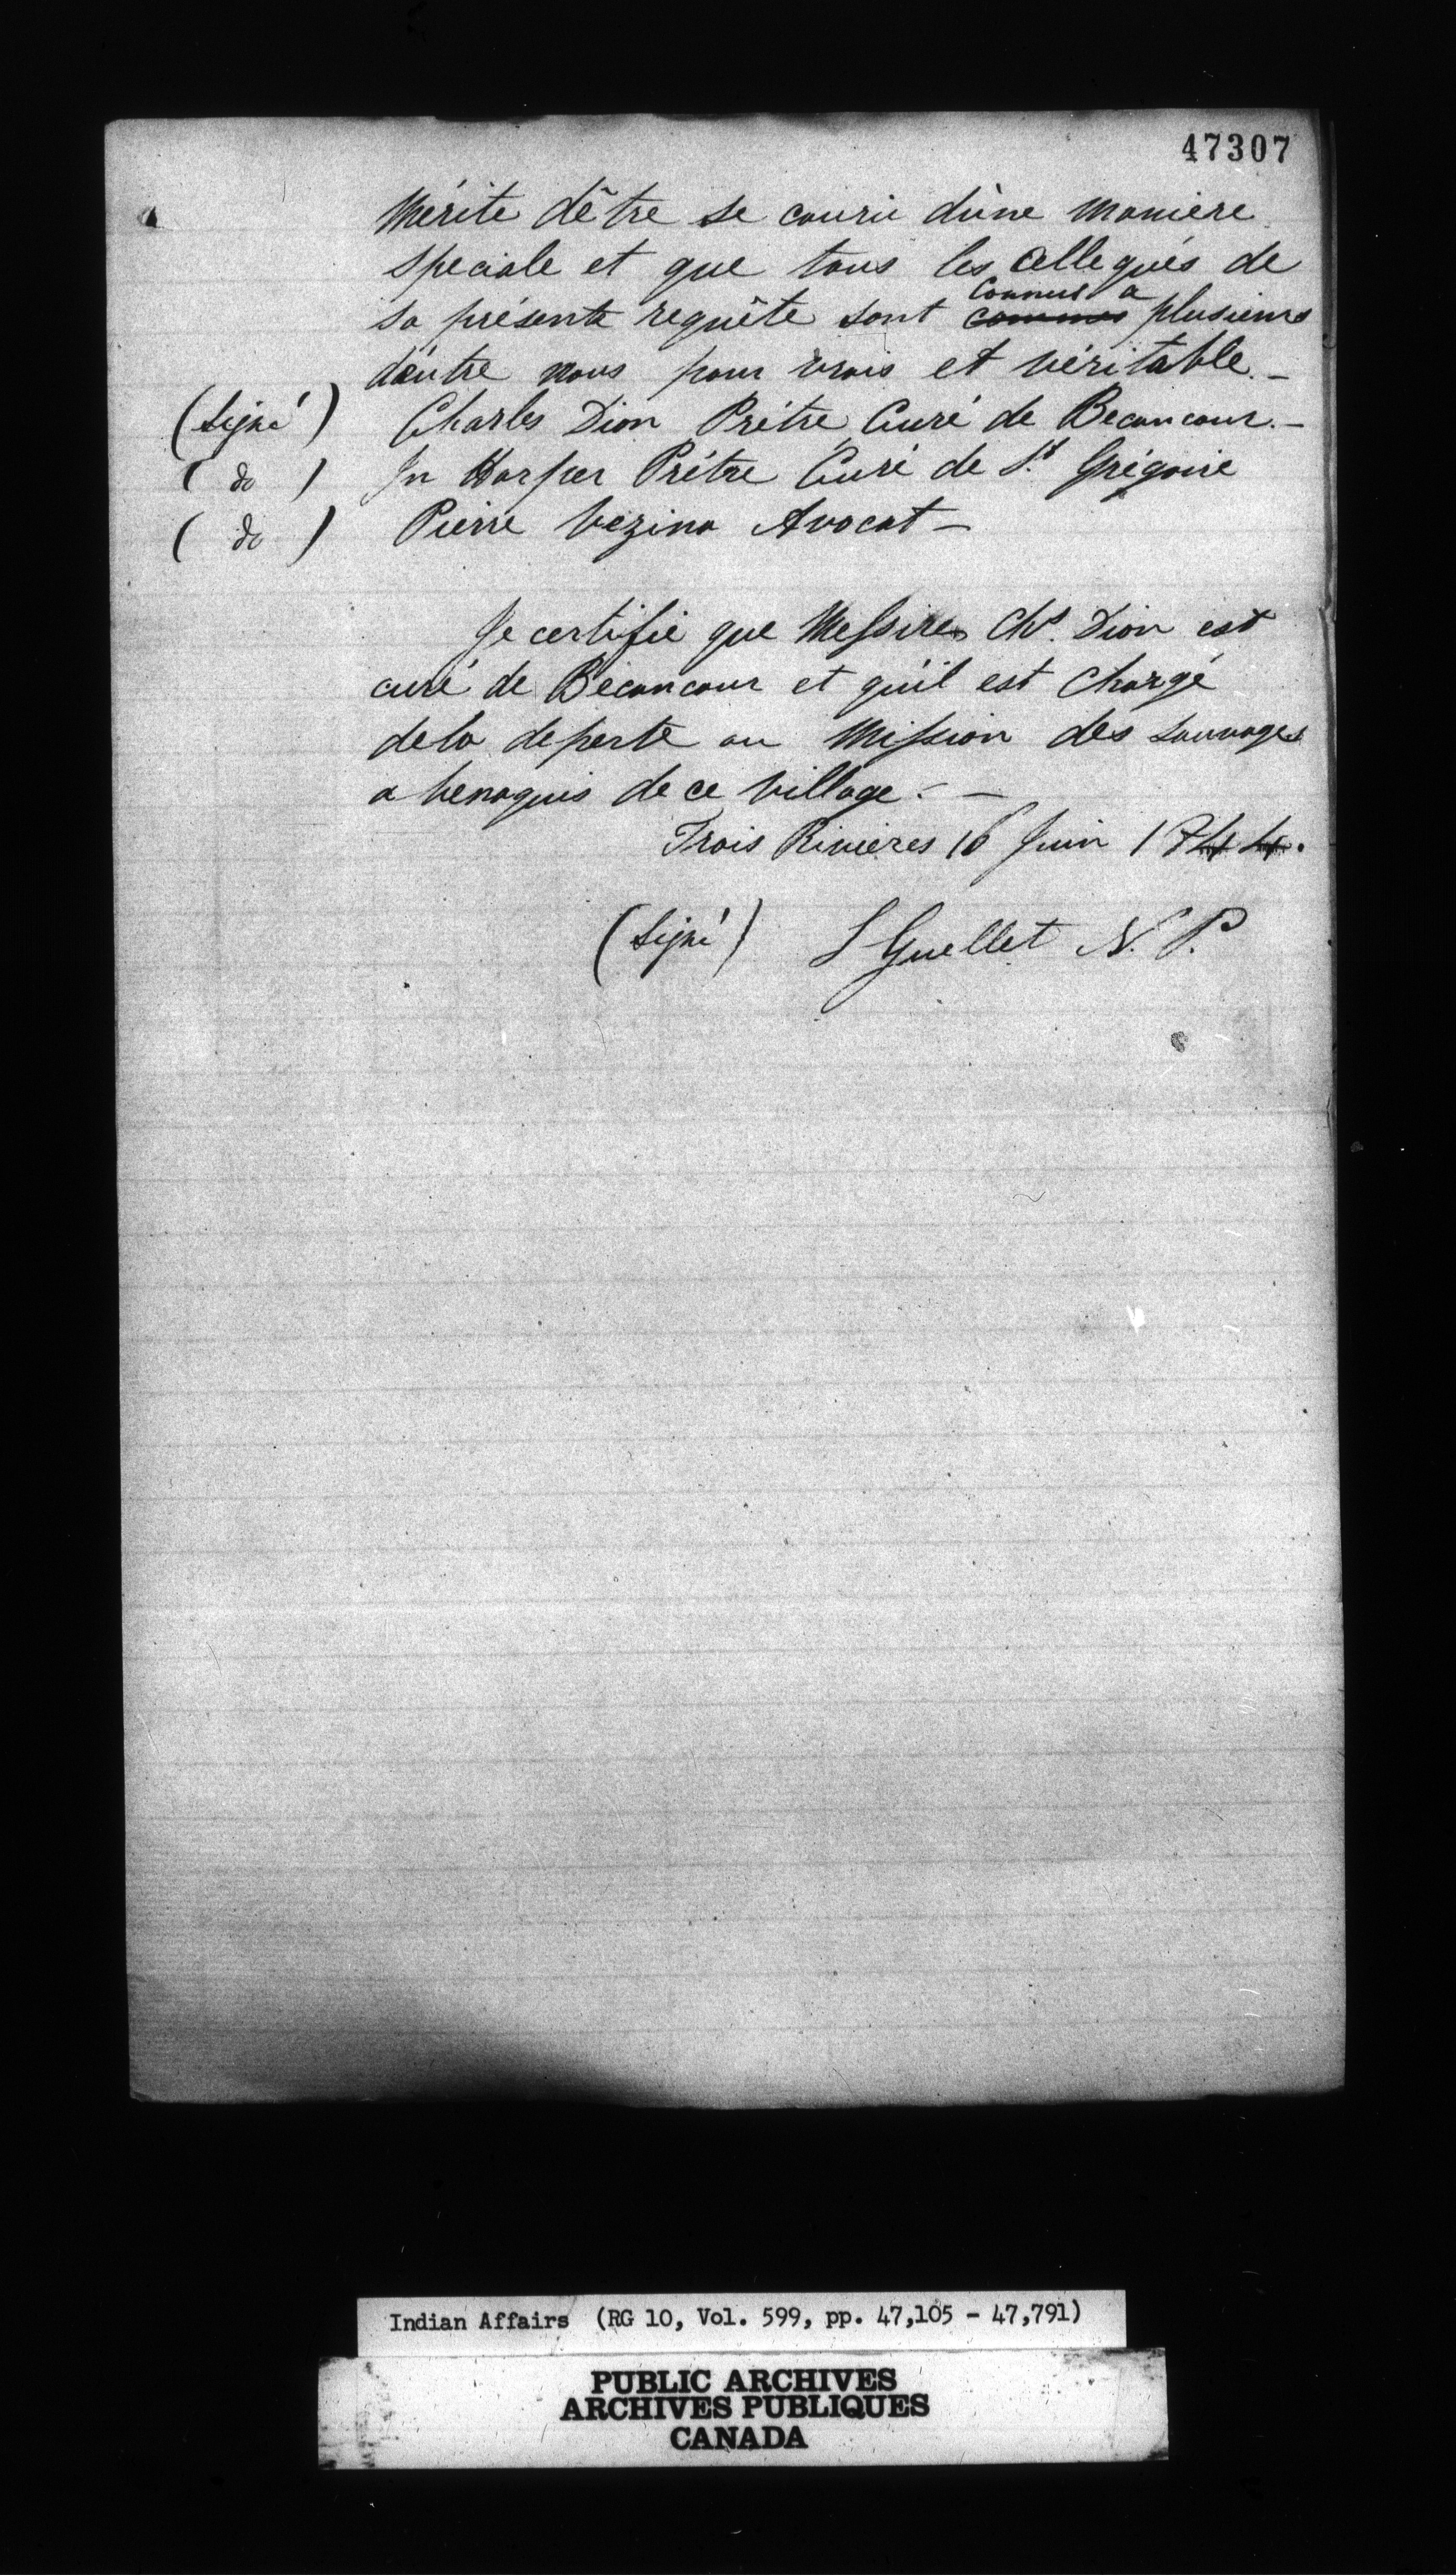 47307
Mérite d'être se couru d'une maniere
speciale et que tous les allegués de
sa présente requête sont connus a plusieurs
d'entre nous pour vrais et véritable. –
(Signé) Charles Dion Prêtre Curé de Becancour. –
( do ) Jn Harper Prêtre Curé de St. Grégoire
( do ) Pierre Vezina Avocat –
Je certifie que Messires Chs. Dion est
curé de Becancour et qu'il est chargé
dela deperte ou Mission des sauvages
a benaquis de ce village. –
Trois Rivieres 16 Juin 1844.
(Signé) L Guellet N. P.
Indian Affairs (RG 10, Vol. 599, pp. 47,105 - 47,791)
PUBLIC ARCHIVES
ARCHIVES PUBLIQUES
CANADA